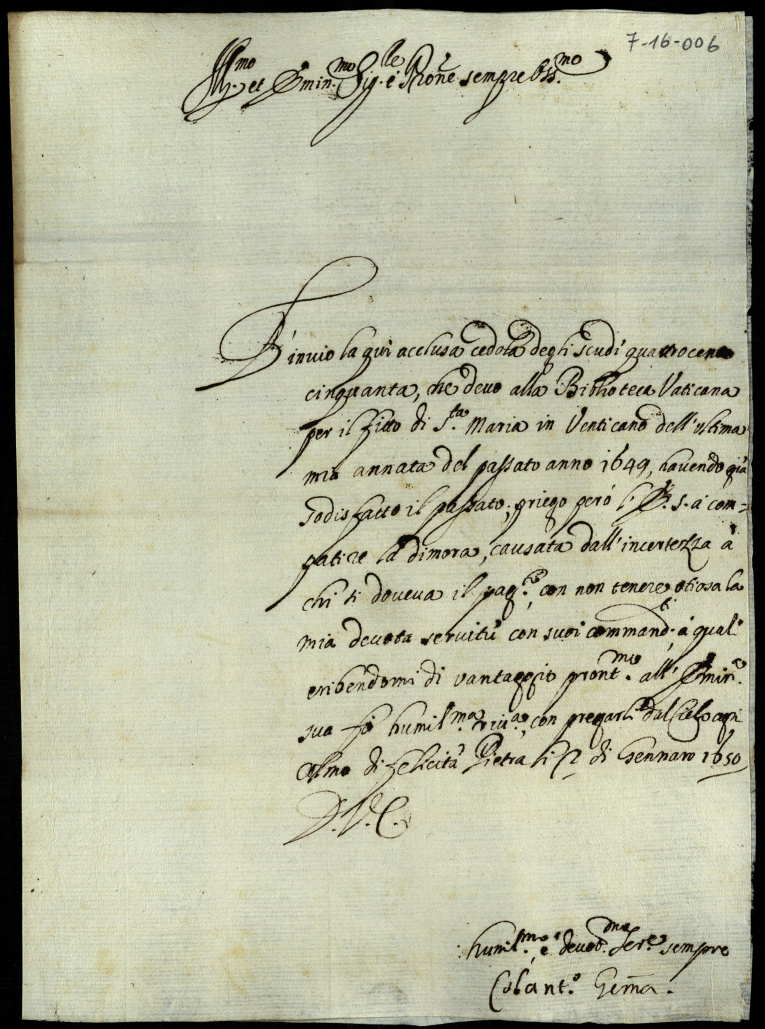 7-16-006
Ill.mo et Emin.mo Sig.e Prōne sempre
S'invio la qui aclusa cedola degli scudi quattrocento
cinquanta, che devo alla Biblioteca Vaticana
per il fitto di S.ta Maria in Venticano dell'ultima
mia annata del passato anno 1649, havendo già
sodisfatto il passato, priego però l'E. S. à com-
patire la dimora, causata dall'incertezza à
chi si doveva il pag.to, con non tenere otiosa la
mia devota servitù con suoi command.ti, à quali
esibendomi di vantaggio pront.mo all'Emin.a
sua fò humil.ma riv.a, con pregarli dal Cielo ogni
colmo di felicità Pietra li di Gennaro 1650
D. V. E.
humil.mo e devot.mo Ser.e sempre
Colant.o Gem̄a.